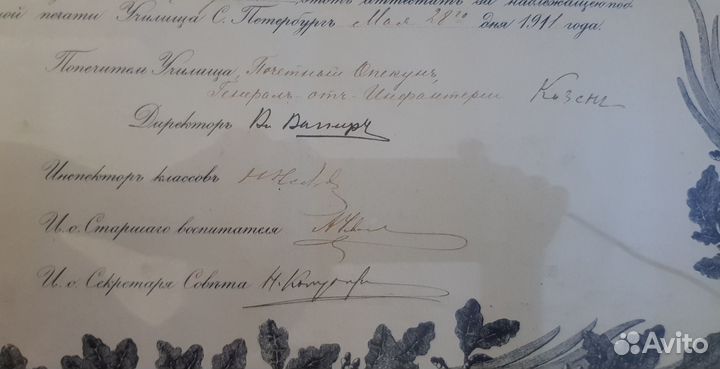 этотъ аттестатъ за надлежащею под-
ной печати Училища С. Петербургъ Мая 28го дня 1911 года.
Попечитель Училища, Почетный Опекунъ,
Генералъ-отъ-Инфантеріи
Директоръ Вл.
Инспекторъ классовъ
И. о. Старшаго воспитателя
И. о. Секретаря Совѣта Н.
Avito